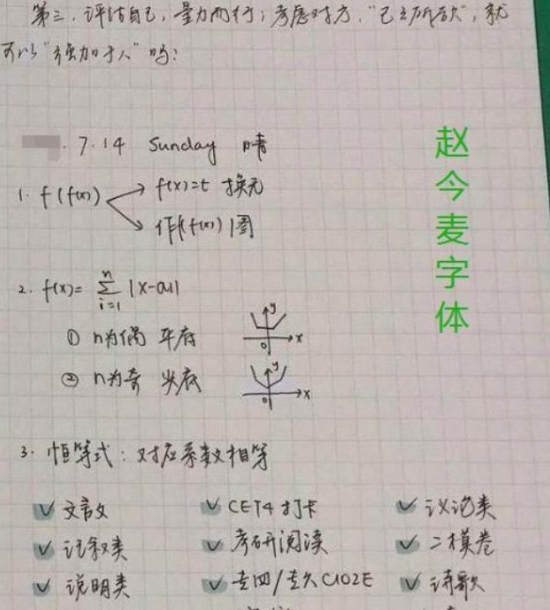 第三,评估自己,量力而行;考虑对方,“己之所欲”,就
可以“强加于人”吗?
7.14 Sunday 晴
1. f(f(x)) → f(x)=t 换元
→ 作|f(x)|图
2. f(x)= \sum_{i=1}^{n} |x-ai|
① n为偶 平底 y x 0
② n为奇 尖底 y x 0
3. 恒等式:对应系数相等
✓ 文言文 ✓ CET4打卡 ✓ 议论类
✓ 记叙类 ✓ 考研阅读 ✓ 二模卷
✓ 说明类 ✓ 专四/专八CLOZE ✓ 诗歌
赵今麦字体